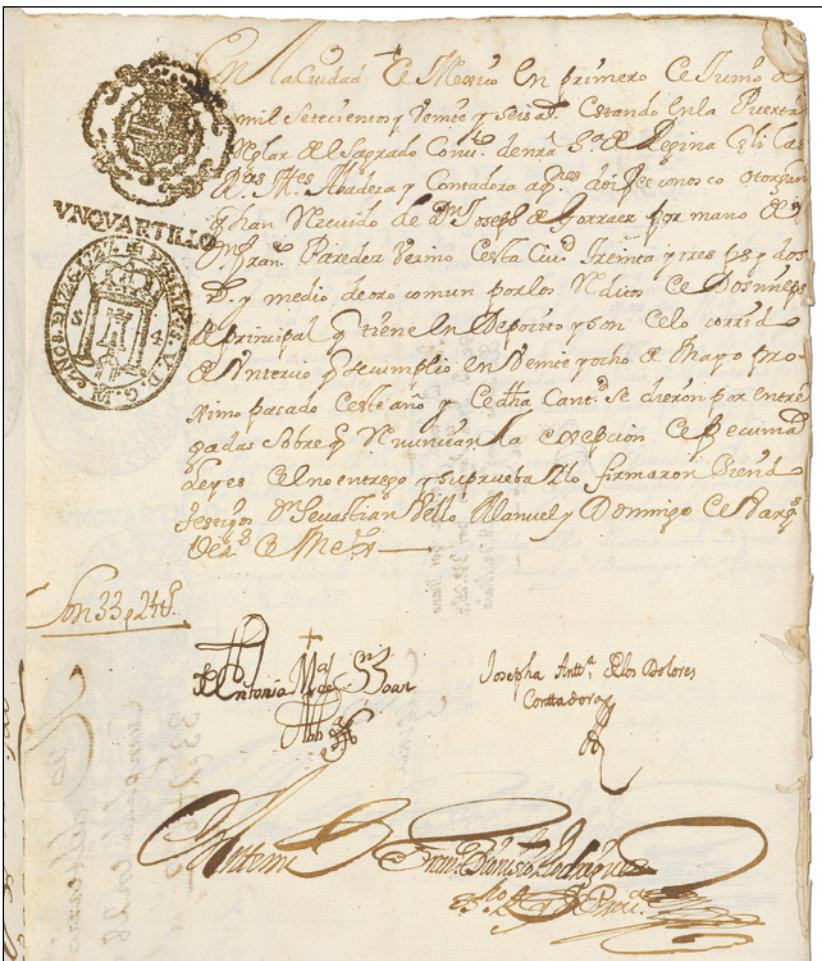 En la Ciudad de Mexico en primero de Junio de
mil setecientos y Veinte y seis a.s Estando en la Puerta
Reglar del Sagrado Conv.to de nra S.ra de Regina Celi Las
R.das M.es Abadesa y Contadora a q.nes doi fee conosco otorgan
q han Recivido de D.n Joseph de Gorraez por mano de
D.n Fran.co Paredes Vezino desta Ciu.d Treinta y tres ps y dos
R.s y medio de oro comun por los Reditos de Dos mil ps
de principal q tiene en Deposito y son de lo corrido
del Untercio q se cumplio en Veinte y ocho de Mayo pro-
ximo pasado deste año y de dha Cant.d se dieron por entre
gadas sobre q Renunciaron la excepcion de Pecunia
leyes del no entrego y su prueba y lo firmaron siendo
testigos D.n Sevastian Vello Manuel y Domingo de Varg.s
Vez.s de Mex.co
Son 33 p 2½ R.s
VNQVARTILLO
PHILIPPVS V. D. G.
Antonia M.a de S.n Joan
Abb.a
Josepha Antt.a de los Dolores
Conttadora
Antemi
Fran.co Dionisio Rodriguez
Es.no R.l y Proc.a